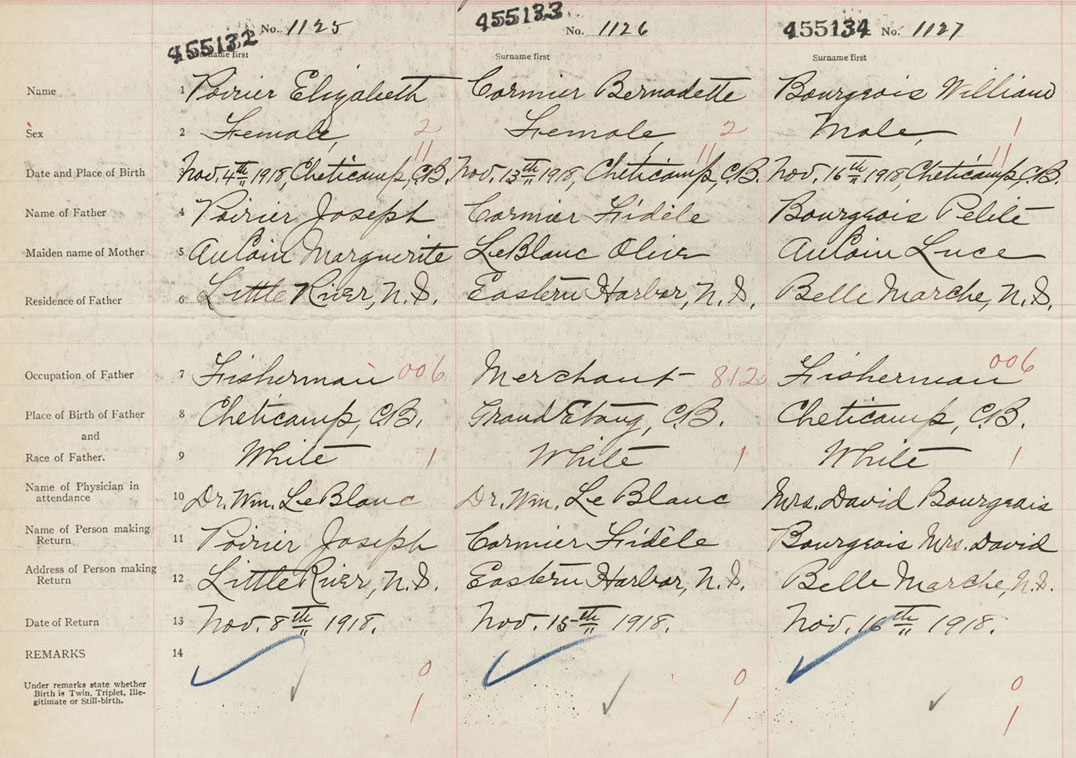 455132 No. 1125 455133 No. 1126 455134 No. 1127
Surname first Surname first Surname first
Name 1 Poirier Elizabeth Cormier Bernadette Bourgeois William
Sex 2 Female, 2 Female, 2 Male, 1
11 11 11
Date and Place of Birth 3 Nov. 4th 1918, Cheticamp, C.B. Nov. 13th 1918, Cheticamp, C.B. Nov. 16th 1918 Cheticamp, C.B.
Name of Father 4 Poirier Joseph Cormier Fidèle Bourgeois Pelité
Maiden name of Mother 5 AuCoin Marguerite LeBlanc Olive AuCoin Luce
Residence of Father 6 Little River, N.S. Eastern Harbor, N.S. Belle Marche, N.S.
Occupation of Father 7 Fisherman 006 Merchant 812 Fisherman 006
Place of Birth of Father 8 Cheticamp, C.B. Grand Etang, C.B. Cheticamp, C.B.
and
Race of Father. 9 White 1 White 1 White 1
Name of Physician in
attendance 10 Dr. Wm. LeBlanc Dr. Wm. LeBlanc Mrs. David Bourgeois
Name of Person making
Return 11 Poirier Joseph Cormier Fidèle Bourgeois Mrs. David
Address of Person making
Return 12 Little River, N.S. Eastern Harbor, N.S. Belle Marche, N.S.
Date of Return 13 Nov. 8th 1918. Nov. 15th 1918. Nov. 16th 1918.
REMARKS 14
0 0 0
Under remarks state whether
Birth is Twin, Triplet, Ille-
gitimate or Still-birth.
1 1 1